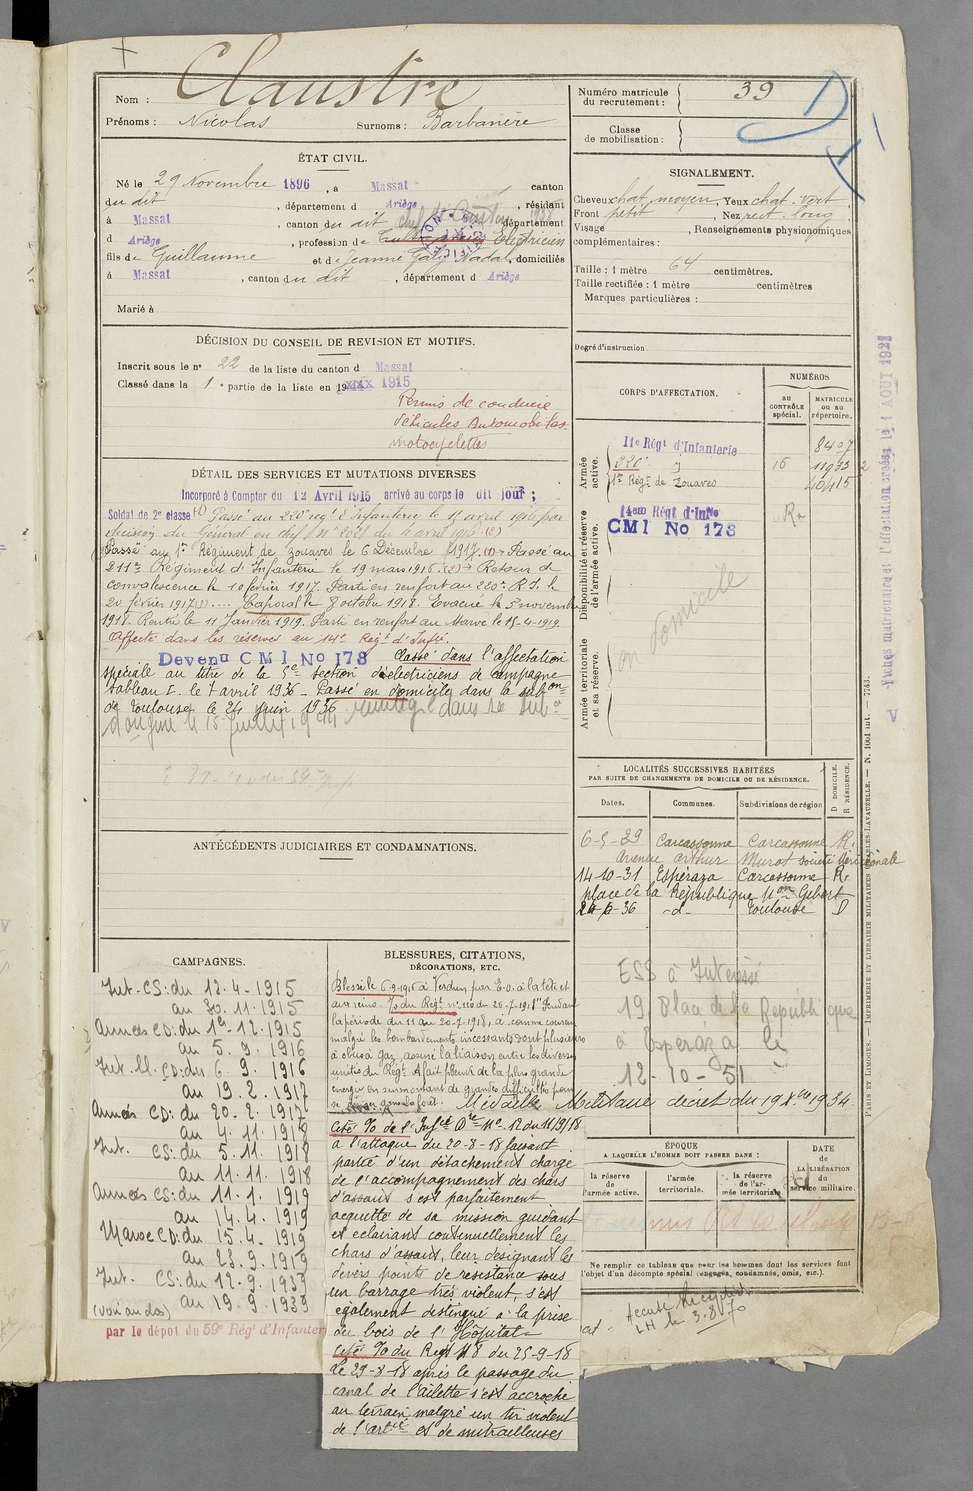 Nom : Claustre
Prénoms : Nicolas Surnoms : Barbanère
ÉTAT CIVIL.
Né le 29 Novembre 1896, à Massat, canton
du dit, département d Ariège, résidant
à Massat, canton du dit, département
d Ariège, profession de Cultivateur Electricien
fils de Guillaume et de Jeanne Galy Nadal, domiciliés
à Massat, canton du dit, département d Ariège
Marié à
DÉCISION DU CONSEIL DE REVISION ET MOTIFS.
Inscrit sous le n° 22 de la liste du canton d Massat
Classé dans la 1e partie de la liste en 1915
Permis de conduire
Véhicules Automobiles
motocyclettes
DÉTAIL DES SERVICES ET MUTATIONS DIVERSES
Incorporé à Compter du 12 Avril 1915 arrivé au corps le dit jour ;
Soldat de 2e classe (1) Passé au 220e rég. d'Infanterie le 5 avril 1916 par
décision du Général en chef n° du 4 avril 1916 (2)
Passé au 1er Régiment de Zouaves le 6 Décembre 1917. (1) → Passé au
211e Régiment d'Infanterie le 19 mars 1916. (2) → Retour de
convalescence le 10 février 1917. Parti en renfort au 220e R.I. le
20 février 1917 (3) .... Caporal le 8 octobre 1918. Evacué le 5 novembre
1918. Rentré le 11 Janvier 1919. Parti en renfort au Maroc le 15-4-1919
Affecté dans les réserves au 14e Régt d'Infie
Devenu CMI No 173 Classé dans l'affectation
spéciale au titre de la 5e section d'électriciens de campagne
tableau I. le 7 avril 1936 - Passé en domicile dans la subon
de Toulouse le 24 juin 1936
d'origine le 15 juillet 1914 dans sa sub.
ANTÉCÉDENTS JUDICIAIRES ET CONDAMNATIONS.
CAMPAGNES.
Int. CS: du 12.4.1915
au 30.11.1915
Armées CD: du 1er.12.1915
au 5.9.1916
Int. bl. CD: du 6.9.1916
au 19.2.1917
Armées CD: du 20.2.1917
au 4.11.1918
Int. CS: du 5.11.1918
au 11.11.1918
Armées CS: du 11.1.1919
au 14.4.1919
Maroc CD: du 15.4.1919
au 23.9.1919
Int. CS: du 12.9.1939
(voir au dos) au 19.9.1939
par le dépot du 59e Régt d'Infanterie
BLESSURES, CITATIONS,
DÉCORATIONS, ETC.
Blessé le 6-9-1916 à Verdun par E.O. à la tête et
aux reins. % du Régt n° 110 du 26-7-1918 "Pendant
la période du 11 au 20-7-1918, a, comme coureur
malgré les bombardements incessants dont plusieurs
à obus à gaz, assuré la liaison entre les diverses
unités du Régt. A fait preuve de la plus grande
énergie en surmontant de grandes difficultés pour
se diriger dans la forêt. Médaille Militaire décret du 19 8bre 1954
Cité % de l'Infie Don n° 12 du 11/9/18
a l'attaque du 20-8-18 faisant
partie d'un détachement chargé
de l'accompagnement des chars
d'assaut s'est parfaitement
acquitté de sa mission guidant
et eclairant continuellement les
chars d'assaut, leur designant les
divers points de résistance sous
un barrage très violent, s'est
egalement distingué a la prise
du bois de l'Hôpital
Cité % du Regt 118 du 25-9-18
Le 29-8-18 après le passage du
canal de l'ailette s'est accroché
au terrain malgré un tir violent
de l'artie et de mitrailleuses
Numéro matricule
du recrutement : 39
Classe
de mobilisation :
SIGNALEMENT.
Cheveux chat. moyen, Yeux chat. vert
Front petit, Nez rect. long
Visage , Renseignements physionomiques
complémentaires :
Taille : 1 mètre 64 centimètres.
Taille rectifiée : 1 mètre centimètres
Marques particulières :
Degré d'instruction.
CORPS D'AFFECTATION.
NUMÉROS
au
CONTRÔLE
spécial.
MATRICULE
ou au
répertoire.
Armée
active.
11e Régt d'Infanterie 8407
220e 16 11933
1er Régt de Zouaves 40415
Disponibilité et réserve
de l'armée active.
14em Régt d'Infie
CMI No 173
R
en domicile
Armée territoriale
et sa réserve.
LOCALITÉS SUCCESSIVES HABITÉES
PAR SUITE DE CHANGEMENTS DE DOMICILE OU DE RÉSIDENCE.
Dates. Communes. Subdivisions de région D DOMICILE. R RÉSIDENCE.
6-5-29 Carcassonne Carcassonne R.
avenue arthur Murot société Méridionale
14-10-31 Espéraza Carcassonne R
place de la République Mon Gibert
24-6-36 -d- Toulouse D
ESS à Intéressé
19 Place de la République
à Espéraza le
12-10-51
ÉPOQUE
A LAQUELLE L'HOMME DOIT PASSER DANS :
la réserve
de
l'armée active.
l'armée
territoriale.
la réserve
de l'ar-
mée territoriale.
DATE
de
LA LIBÉRATION
du
service militaire.
Ne remplir ce tableau que pour les hommes dont les services font
l'objet d'un décompte spécial (engagés, condamnés, omis, etc.).
Accusé Réception
LH le 3.8.70
Fiches matriculaire et d'affectation créées le 1 AOUT 1927
PARIS ET LIMOGES. — IMPRIMERIE ET LIBRAIRIE MILITAIRES CHARLES-LAVAUZELLE. — N. 1061 int. — 7743.
V